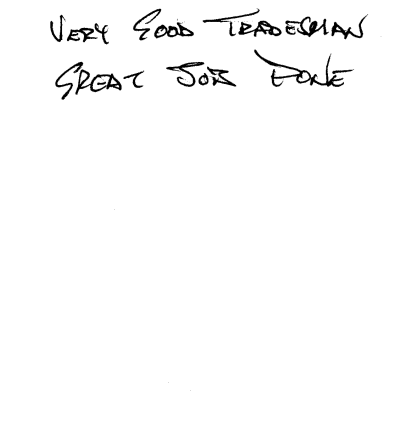 VERY GOOD TRADESMAN
GREAT JOB DONE